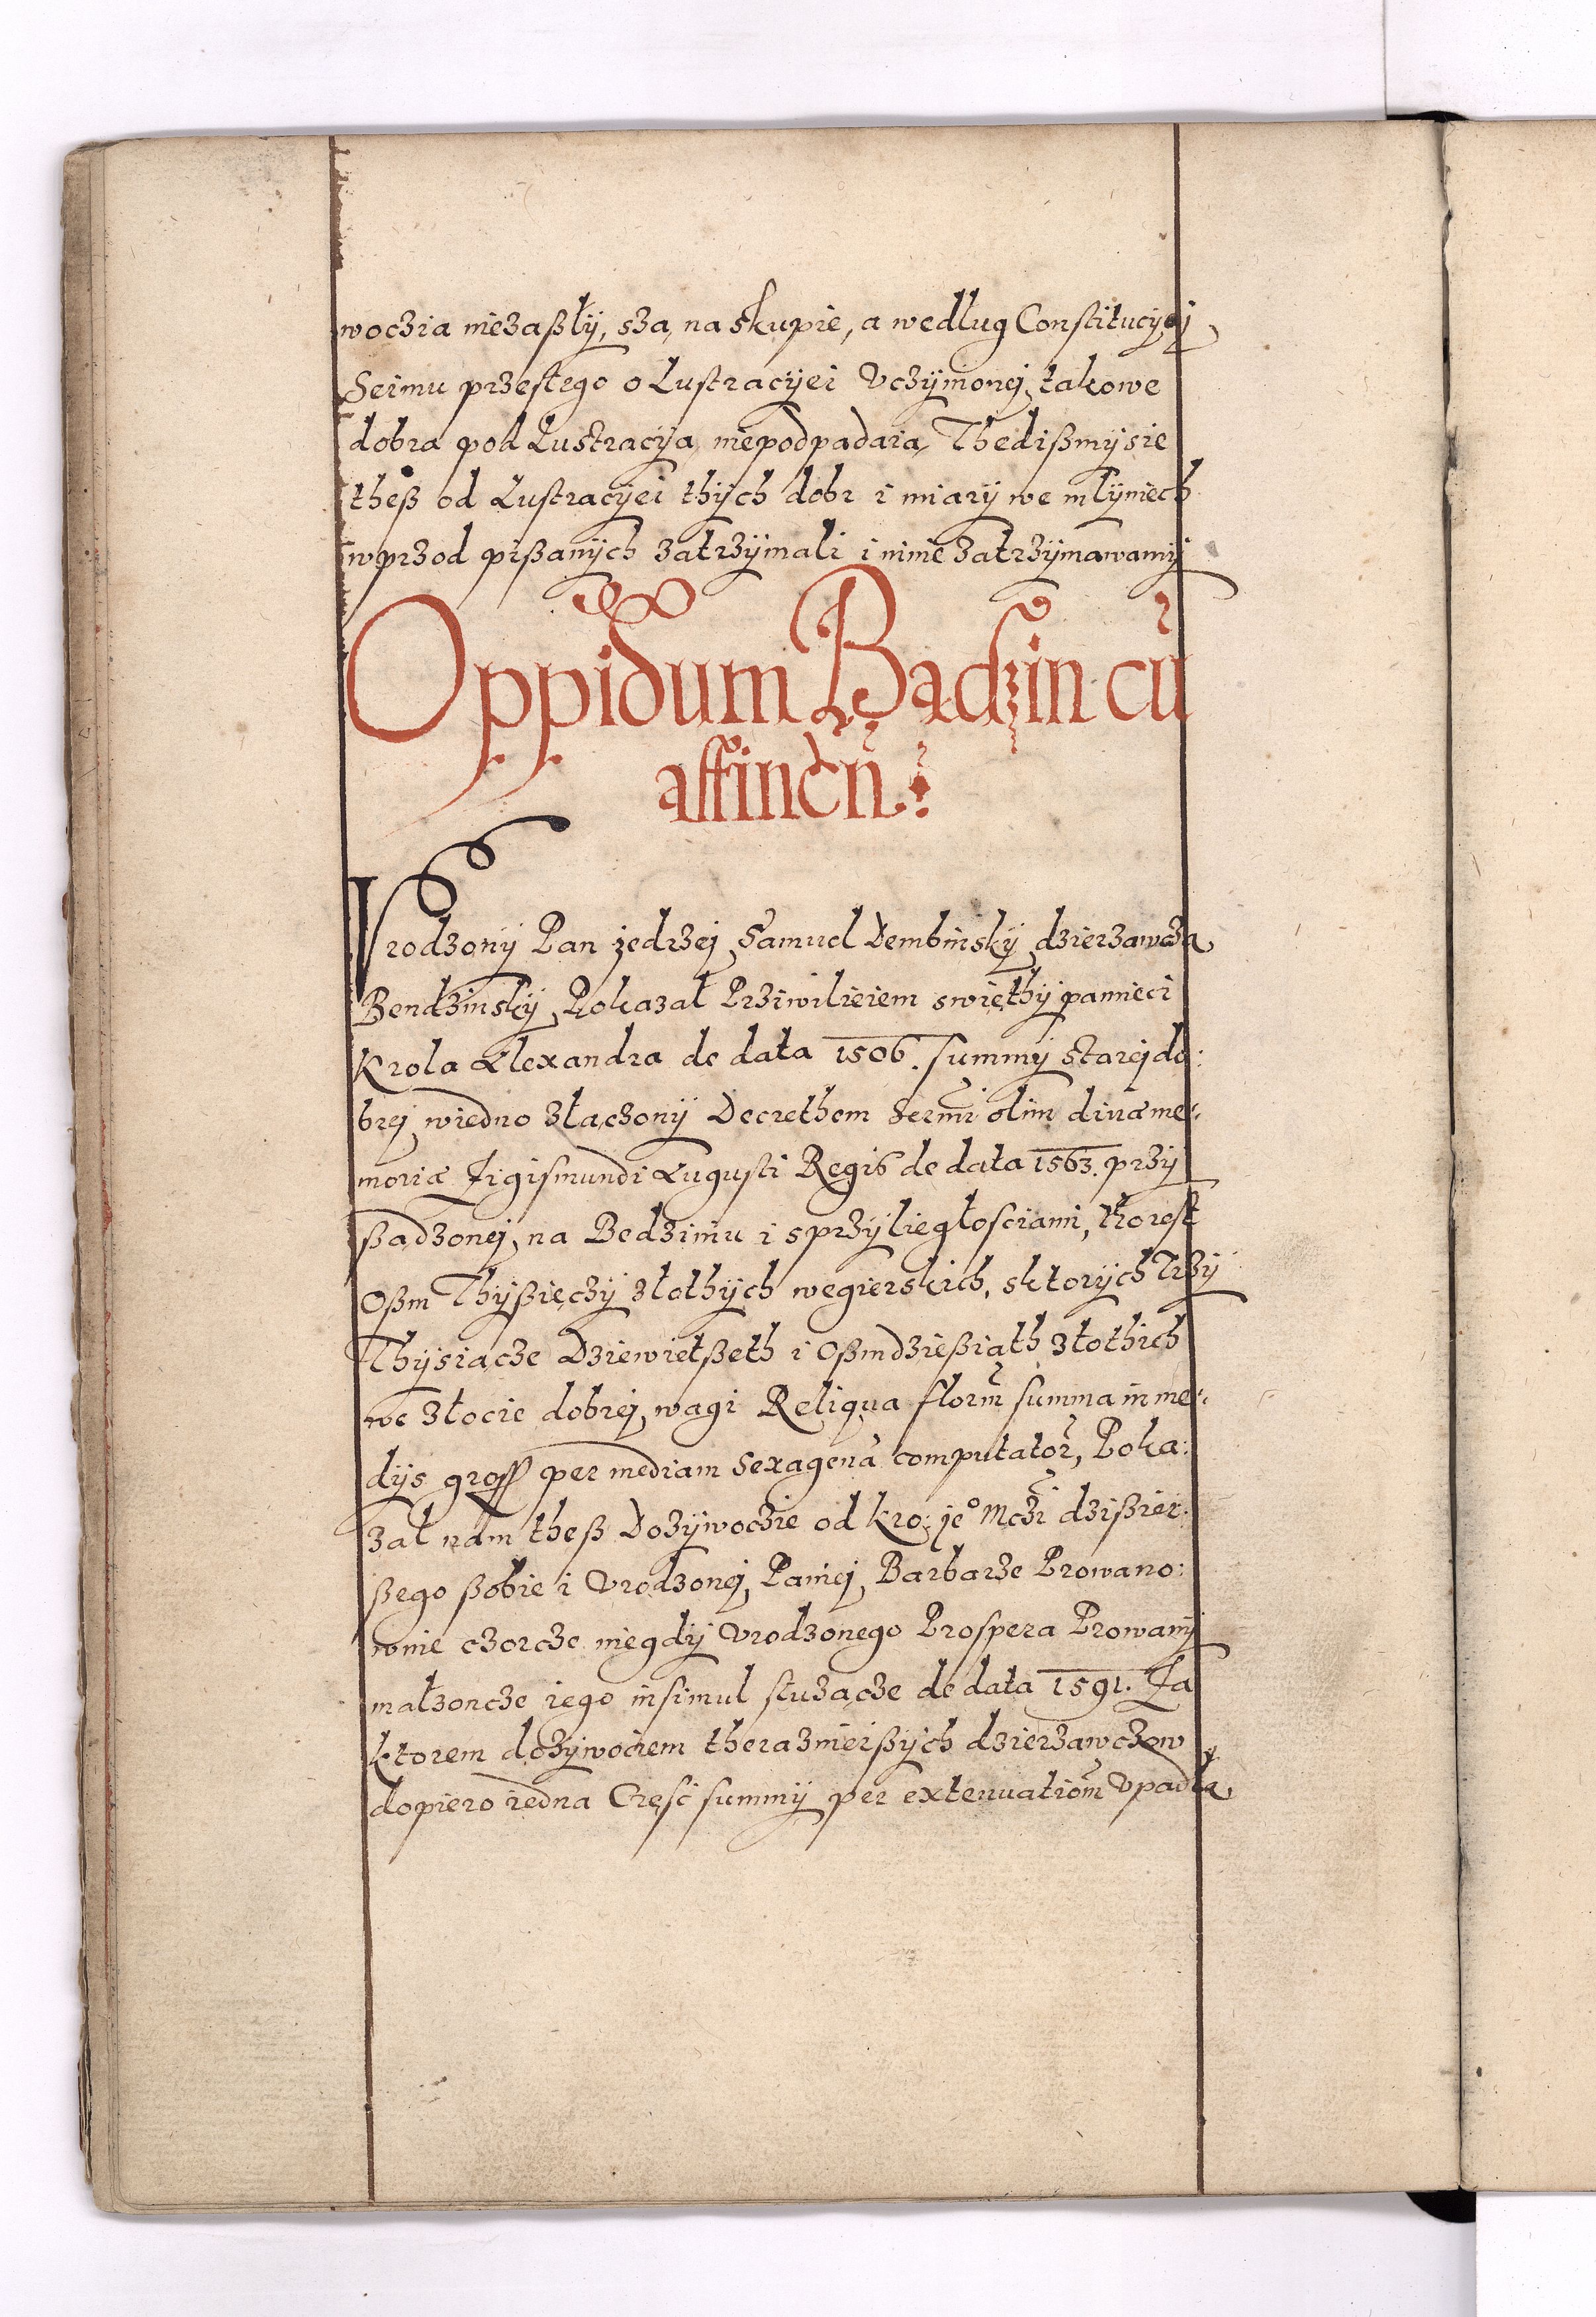 woczia niezaßły, sza, na skupie, a wedlug Constitucyej
Seimu przesłego o Lustracyei Vczynionej, takowe
dobra pod Lustracyją niepodpadaią, Thedißmy sie
theß od Lustracyei thych dobr i miary we młyniech
wprzod pißanych zatrzymali i ninie zatrzymawamy
Oppidum Bądzin cũ
attinen̄.
Vrodzony Pan Jedrzej Samuel Dembinsky dzierzawcza
Bendzinsky, Pokazał Prziwilieiem swięthy pamieci
Krola Alexandra de data 1506. summy starej do:
brej, wiedno złączony Decrethem Serm̄i olim divæ me:
moriæ Sigismundi Augusti Regis de data 1563. przy
ßądzonej, na Bedzinu i s przyliegłosciami, tho rest
Oßm Thyßięczy złothych wegierskich, s ktorych Trzy
Thysiacze Dziewietßeth i Oßmdzießiąth złothich
we złocie dobrej wagi Reliqua florm̄ summa in me:
dys gross per mediam Sexagenā computator̄, Poka:
zał nam theß Dozywoczie od kro: je° Mczi dzißiei:
ßego ßobie i Vrodzonej, Paniej, Barbarze Prowano:
wnie czorcze niegdy Vrodzonego Prospera Prowany
małzoncze iego insimul służącze de data 1591. Za
ktorem dożywociem therazniejßych dzierzawczow
dopiero iedna Część summy per extenuationm̄ Vpadła